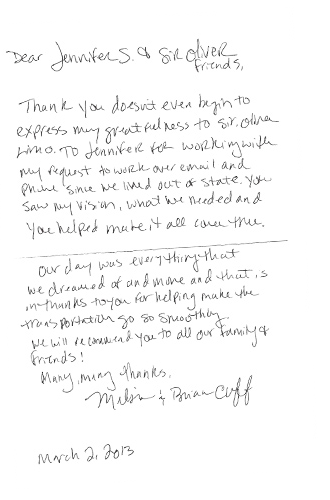 Dear Jennifer S. & Sir Oliver
friends,
Thank you doesn't even begin to
express my greatfulness to Sir Oliver
Limo. To Jennifer for working with
my request to work over email and
phone since we lived out of state. You
saw my vision, what we needed and
you helped make it all come true.
Our day was everything that
we dreamed of and more and that is
in thanks to you for helping make the
transportation go so smoothly.
We will recommend you to all our family &
friends!
Many, many thanks,
& Brian Cuff
March 2, 2013